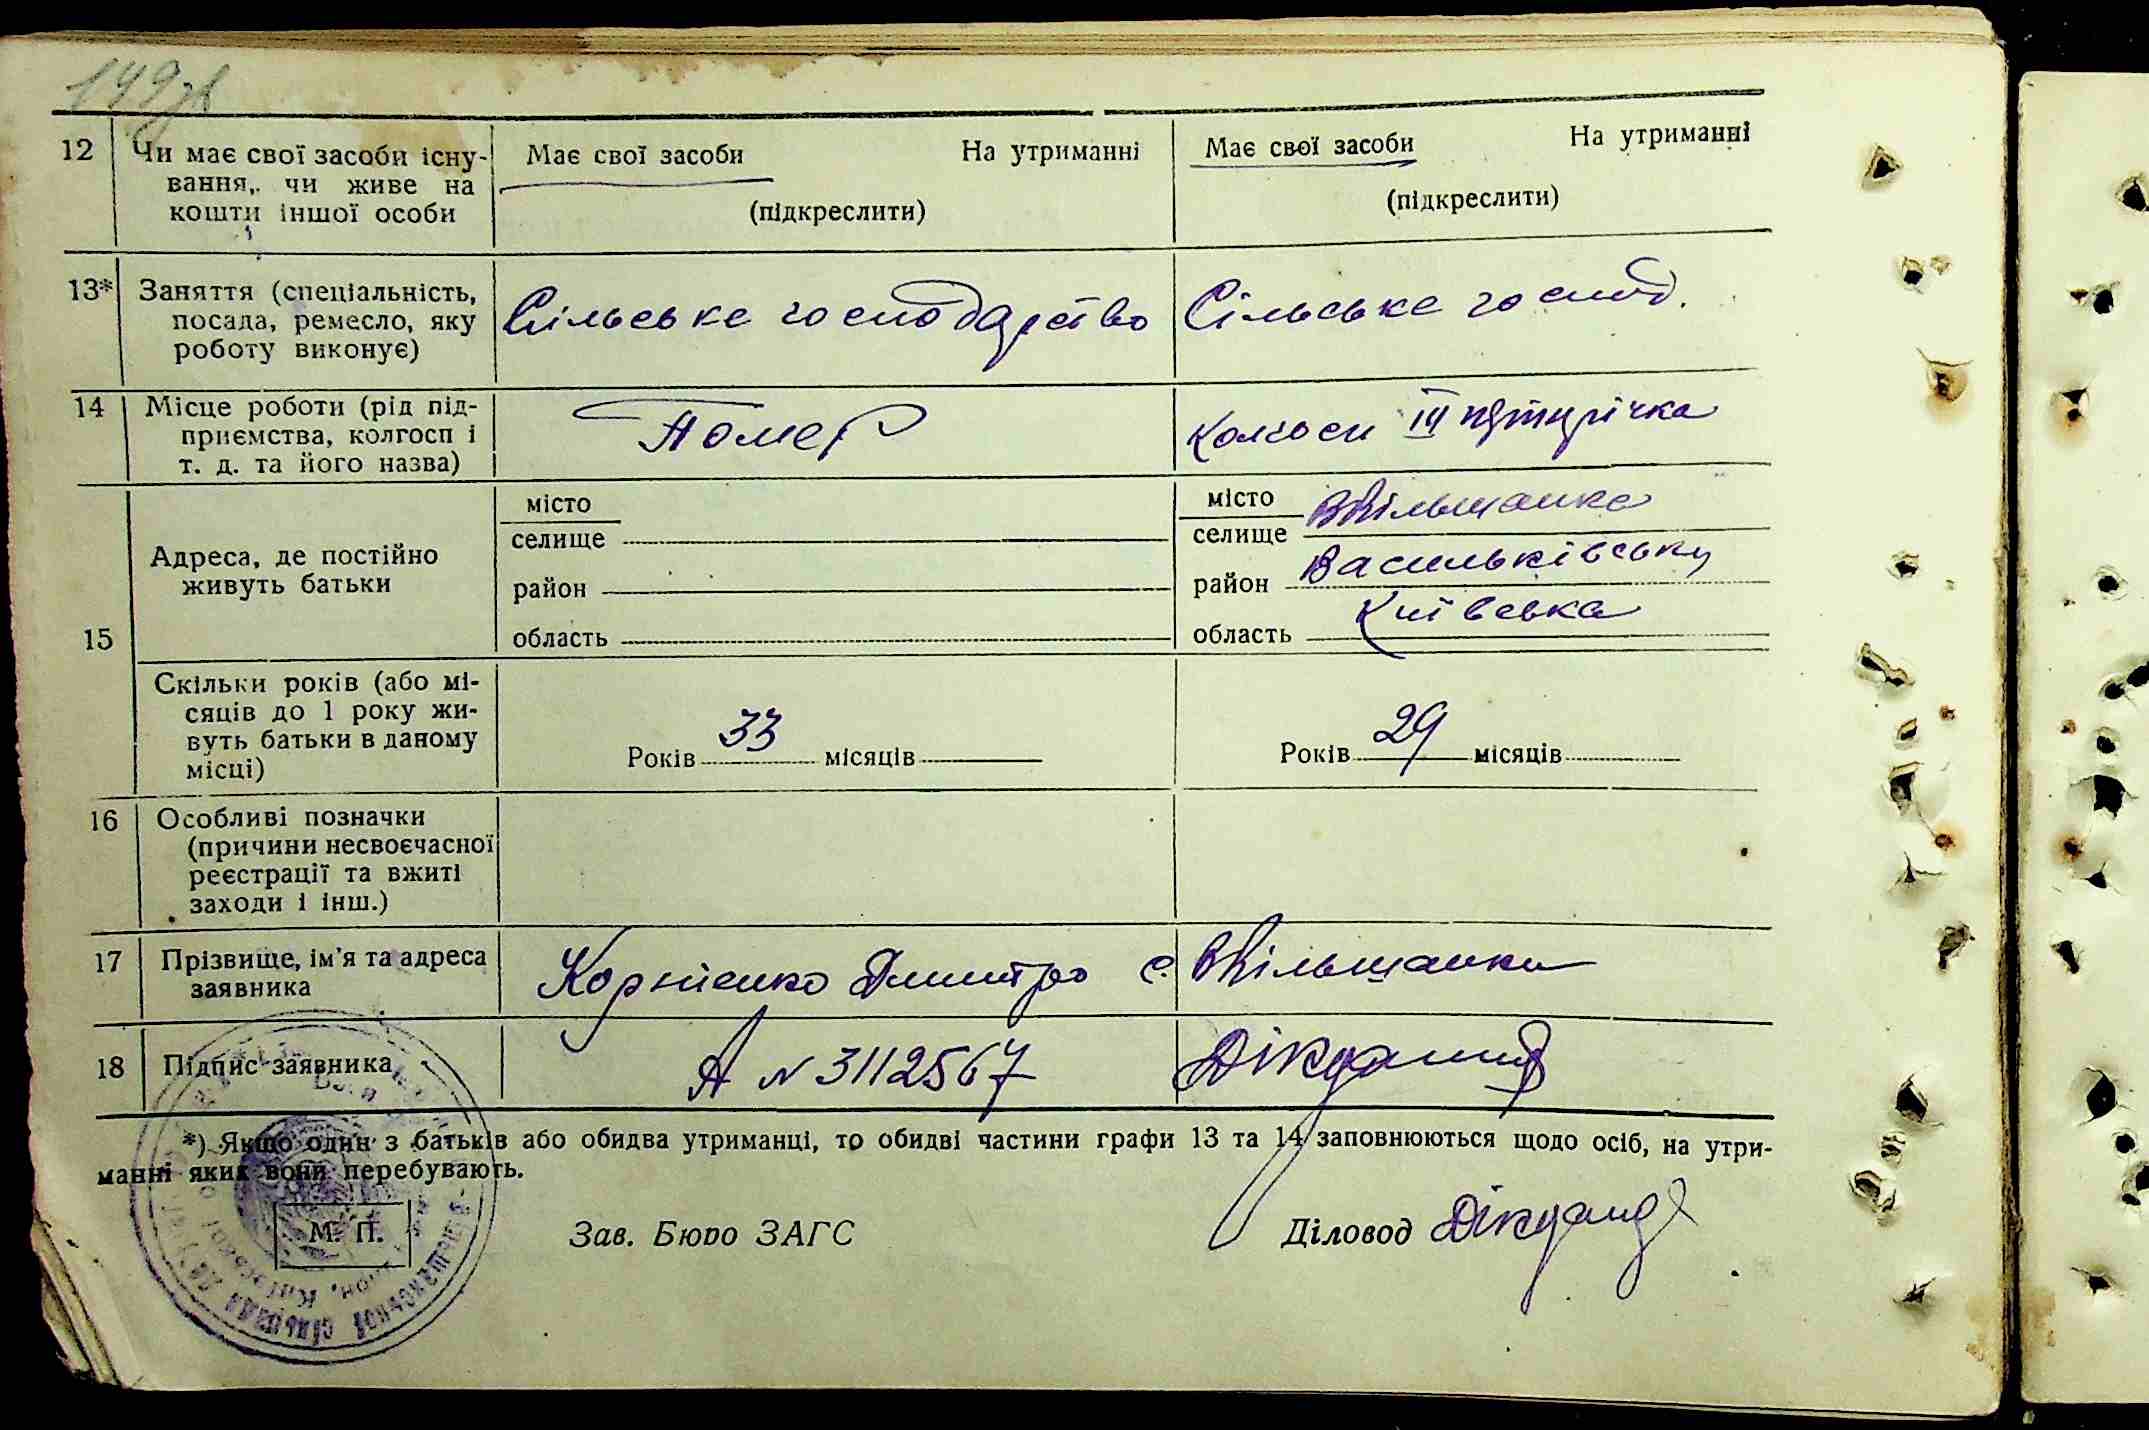 149зв
12 Чи має свої засоби існу- Має свої засоби На утриманні Має свої засоби На утриманні
вання, чи живе на
кошти іншої особи (підкреслити) (підкреслити)
13* Заняття (спеціальність,
посада, ремесло, яку Сільське господарство Сільське господ.
роботу виконує)
14 Місце роботи (рід під-
приємства, колгосп і Помер колгосп III пятирічка
т. д. та його назва)
15 Адреса, де постійно
живуть батьки
місто
селище
район
область
місто ВВільшанка
селище
район Васильківський
область Київська
Скільки років (або мі-
сяців до 1 року жи-
вуть батьки в даному
місці)
Років 33 місяців Років 29 місяців
16 Особливі позначки
(причини несвоєчасної
реєстрації та вжиті
заходи і інш.)
17 Прізвище, ім'я та адреса
заявника Корнієнко Дмитро с. ВВільшанка
18 Підпис заявника А N 3112567
*) Якщо один з батьків або обидва утриманці, то обидві частини графи 13 та 14 заповнюються щодо осіб, на утри-
манні яких вони перебувають.
М. П. Зав. Бюро ЗАГС Діловод